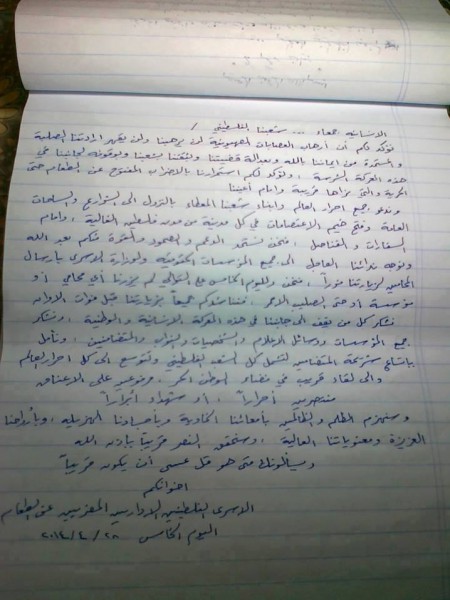 الانسانية جمعاء ... شعبنا الفلسطيني /
نؤكد لكم أن ارهاب العصابات الصهيونية لن يرهبنا ولن يقهر ارادتنا الصلبة
والمستمدة من ايماننا بالله وبعدالة قضيتنا ولثقتنا بشعبنا ولوقوفه لجانبنا في
هذه المعركة الشرسة ، ونؤكد لكم استمرارنا بالاضراب المفتوح عن الطعام حتى
الحرية والتي نراها قريبة وامام أعيننا
وندعو جميع احرار العالم وابناء شعبنا المعطاء بالنزول الى الشوارع والساحات
العامة وفتح خيم الاعتصامات في كل مدينة من مدن فلسطين الغالية ، وامام
السفارات و القناصل ، فنحن نستمد الدعم والصمود و منكم بعد الله
ونوجه ندائنا العاجل الى جميع المؤسسات الحقوقية والوزارة الاسرى بارسال
المحامين لزيارتنا فوراً ، فنحن ولليوم الخامس على التوالي لم يزرنا أي محامي أو
مؤسسة أو حتى الصليب الاحمر ، فنناشدكم جميعاً بزيارتنا قبل فوات الاوان
نشكر كل من يقف الى جانبنا في هذه المعركة الانسانية والوطنية ، ونشكر
جميع المؤسسات ووسائل الاعلام والشخصيات والمتضامنين ، ونأمل
باتساع المتضامنين لتشمل كل الشعب الفلسطيني ولتوسع الى كل احرار العالم
والى لقاء قريب في فضاء الوطن الحر ، مرفوعين على الاعناق
منتصرين أحراراً ، أو شهداء أبراراً
وسنهزم الظلم والظالمين بأمعائنا الخاوية وبأجسادنا الهزيلة ، وبأرواحنا
العزيزة ومعنوياتنا العالية ، وسنحقق النصر قريباً بإذن الله
ويسألونك متى هو قل عسى أن يكون قريباً
اخوانكم
الاسرى الفلسطينيين الاداريين المضربين عن الطعام
اليوم الخامس ٢٨ / ٤ / ٢٠١٤